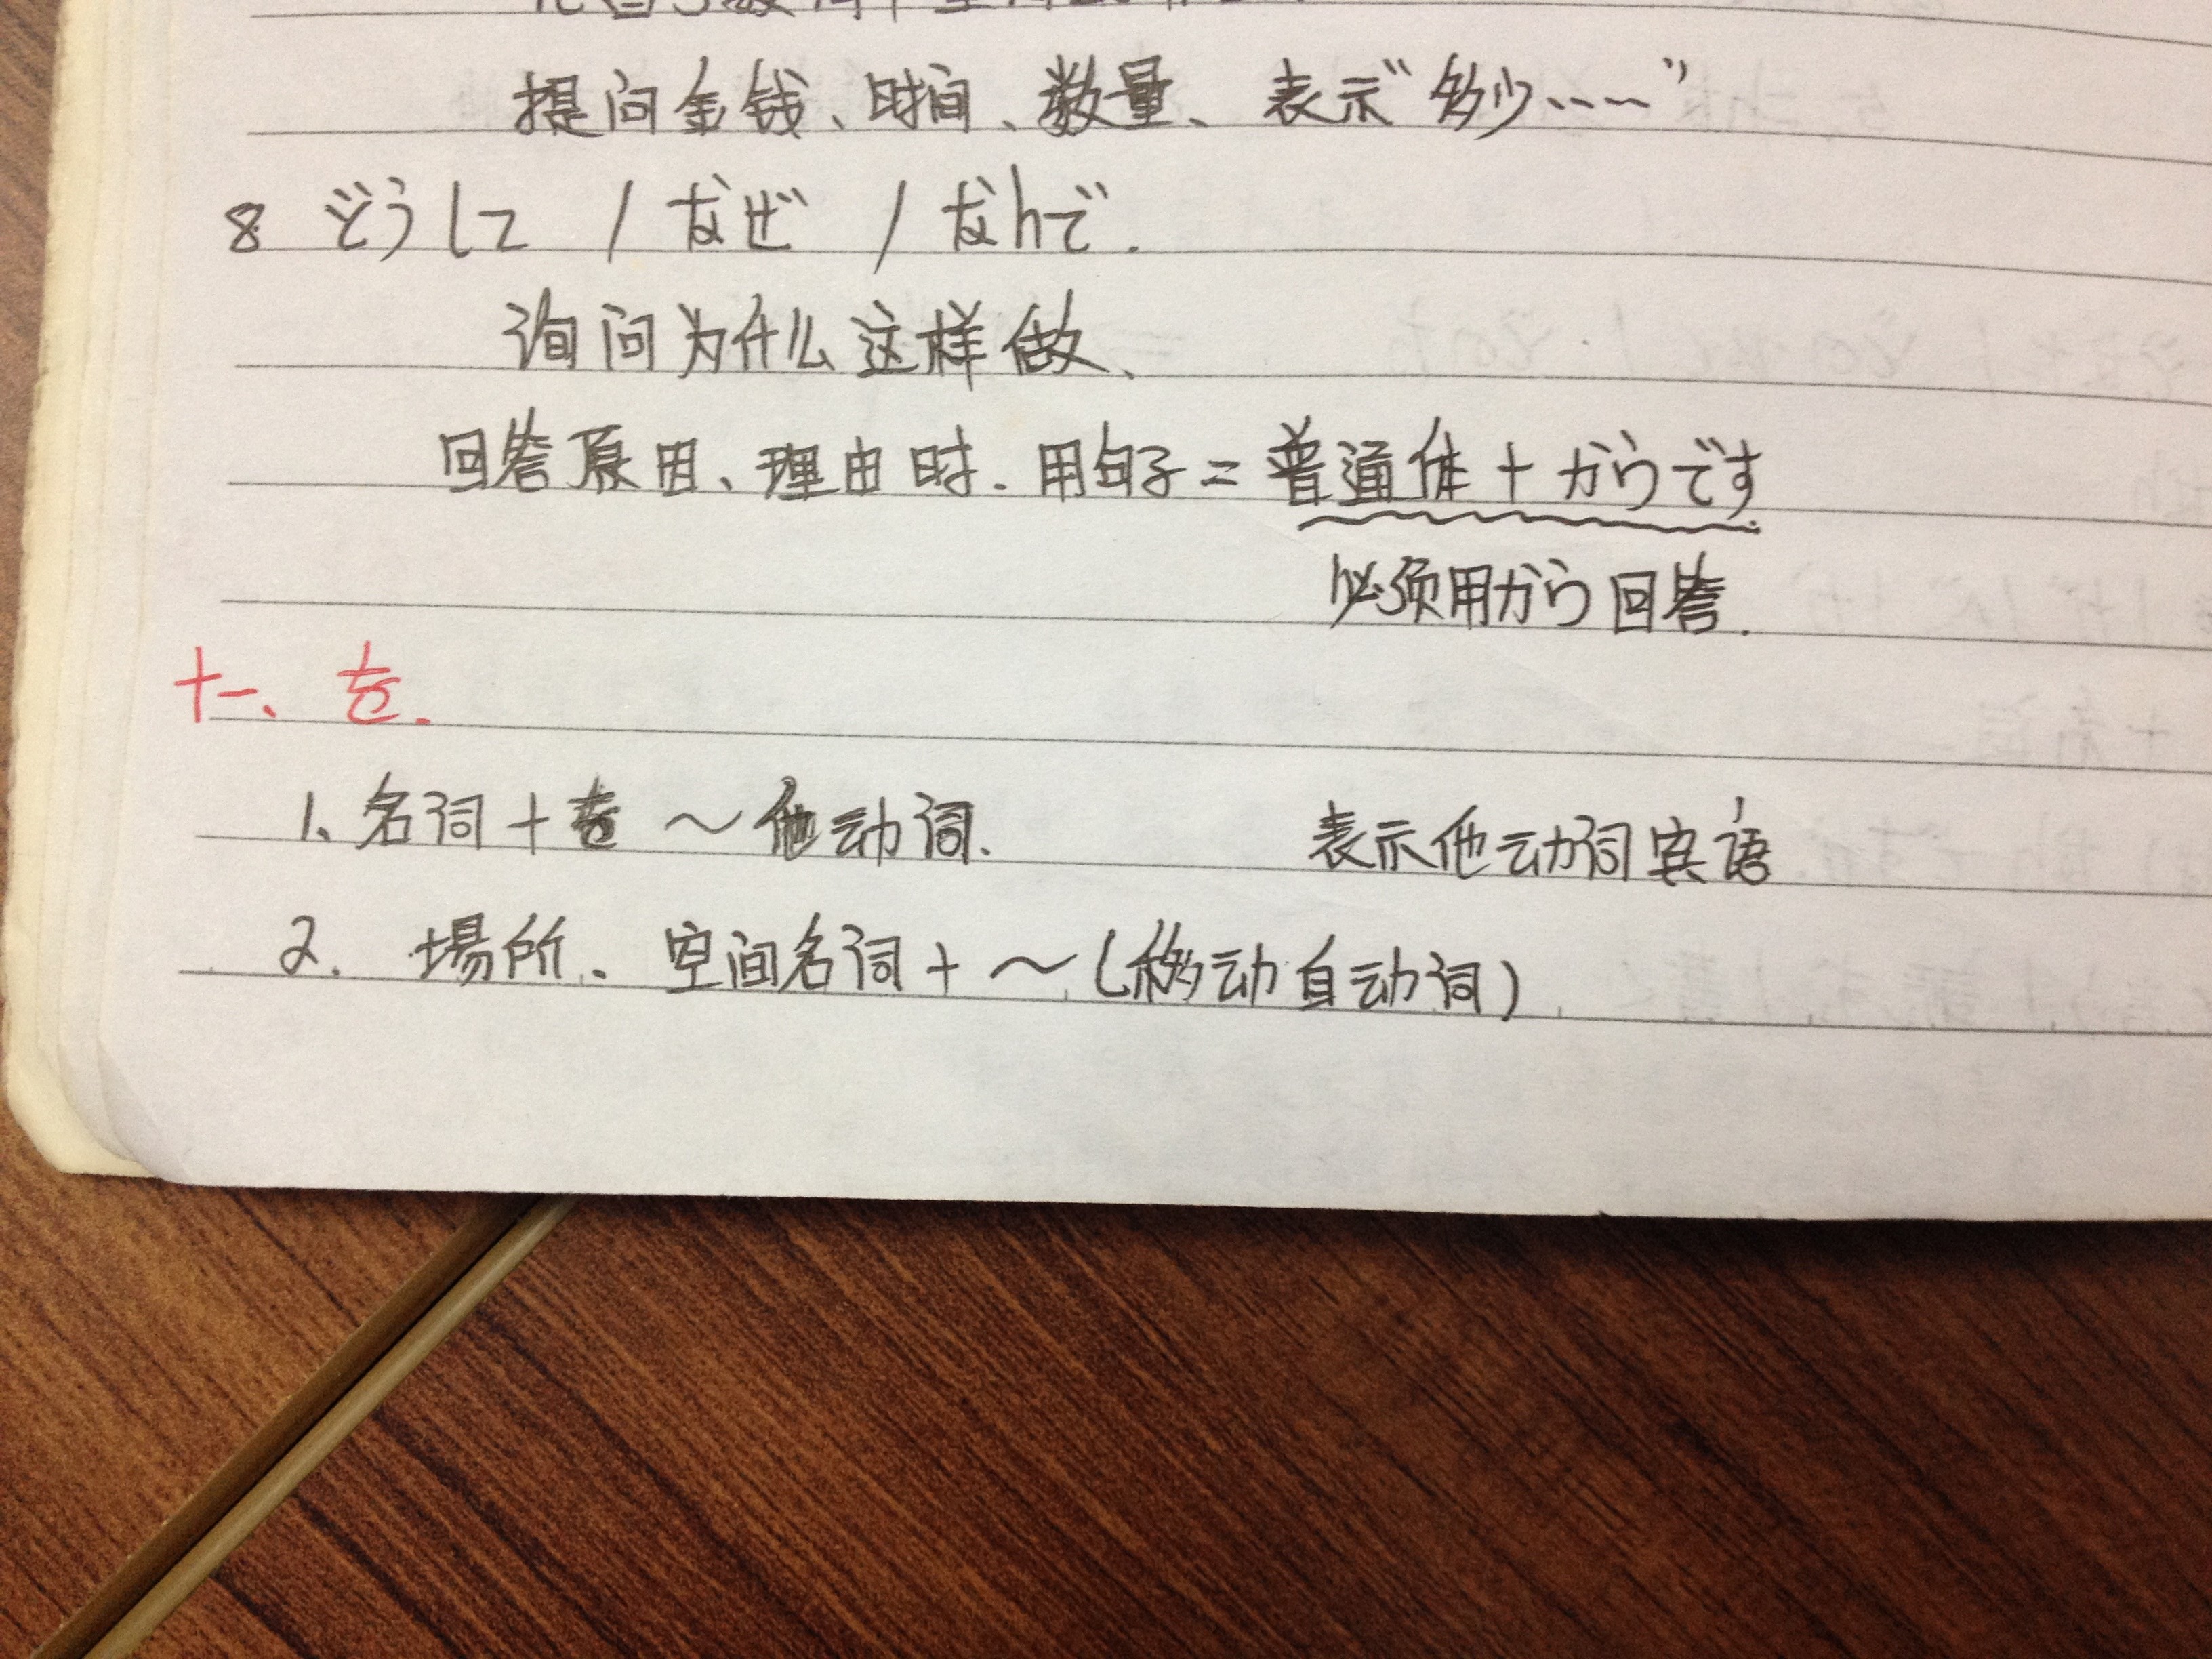 提问金钱、时间、数量、表示“多少……”
8 どうして / なぜ / なんで.
询问为什么这样做、
回答原因、理由时.用句子=普通体+からです
必须用から回答.
十一、を.
1、名词+を ～他动词. 表示他动词宾语
2. 場所、空间名词+～(移动自动词)